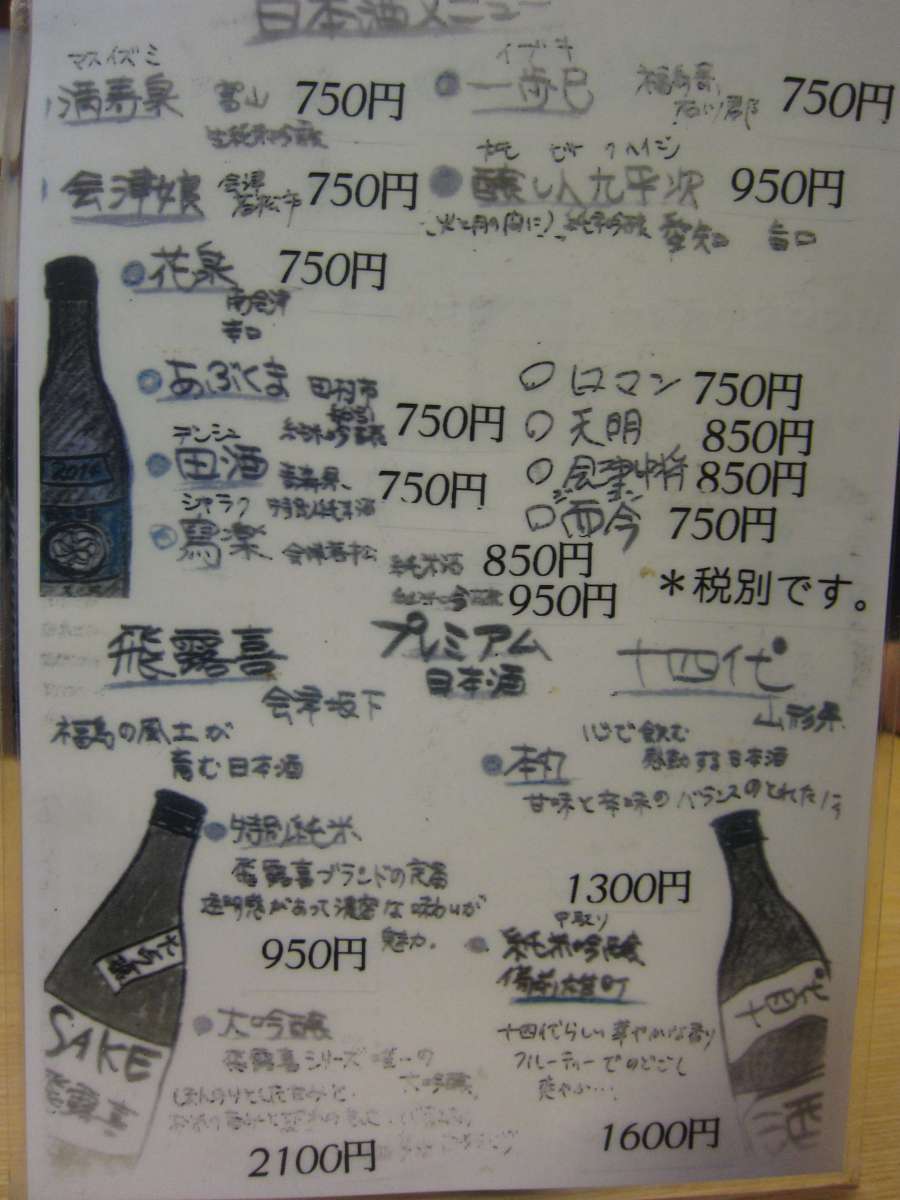 日本酒メニュー
マスイズミ
満寿泉 富山 750円
生純米吟醸
イブキ
一歩己 福島県、石川郡 750円
会津娘 会津若松市 750円
カモシビトクヘイジ
醸し人九平次 950円
(火と月の間に) 純米吟醸 愛知 旨口
花泉 750円
南会津
辛口
あぶくま 田村市
純米吟醸 750円
デンシュ
田酒 青森県、 750円
特別純米酒
シャラク
寫楽 会津若松
純米酒 850円
純米吟醸 950円
ロマン 750円
天明 850円
会津中将 850円
ジコン
而今 750円
*税別です。
2014
プレミアム
日本酒
飛露喜
会津坂下
福島の風土が
育む日本酒
特別純米
飛露喜ブランドの定番
透明感があって濃密な味わいが
魅力。
950円
大吟醸
飛露喜シリーズ唯一の
大吟醸。
2100円
SAKE
飛露喜
十四代
山形県
心で飲む
感動する日本酒
本丸
甘味と辛味のバランスのとれた
1300円
中取り
純米吟醸
備前雄町
十四代らしい華やかな香り
フルーティーでのどごし
爽やか…
1600円